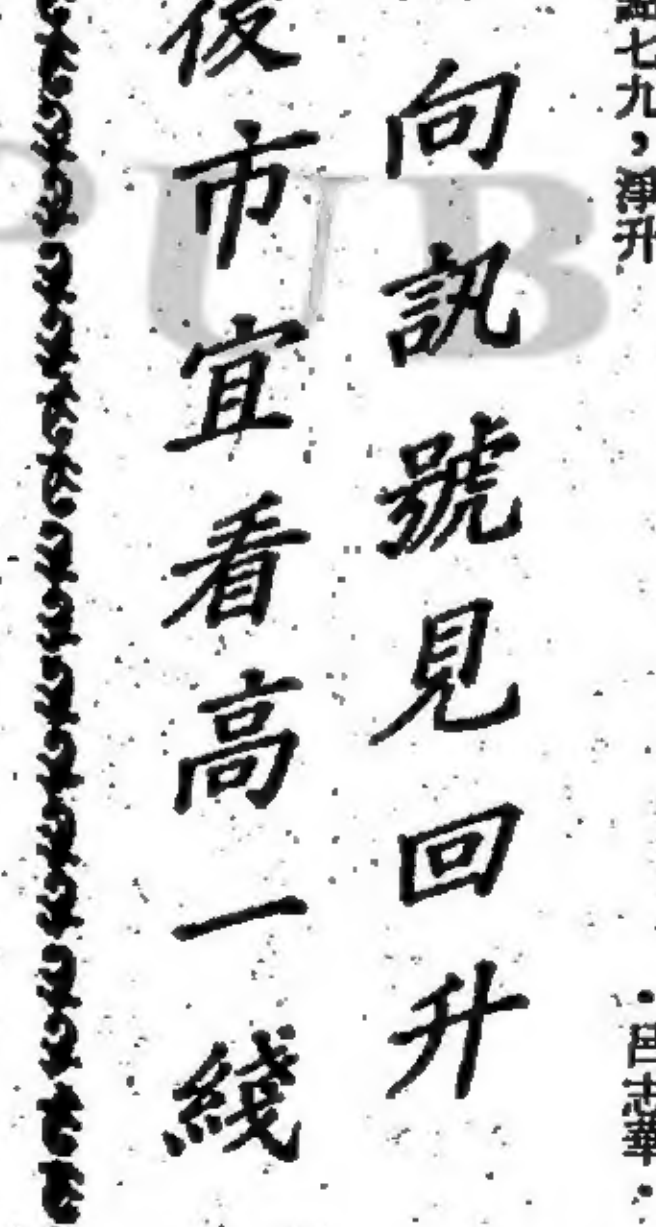 點七九，淨升
・呂志華・
向訊號見回升
後市宜看高一綫
PUB